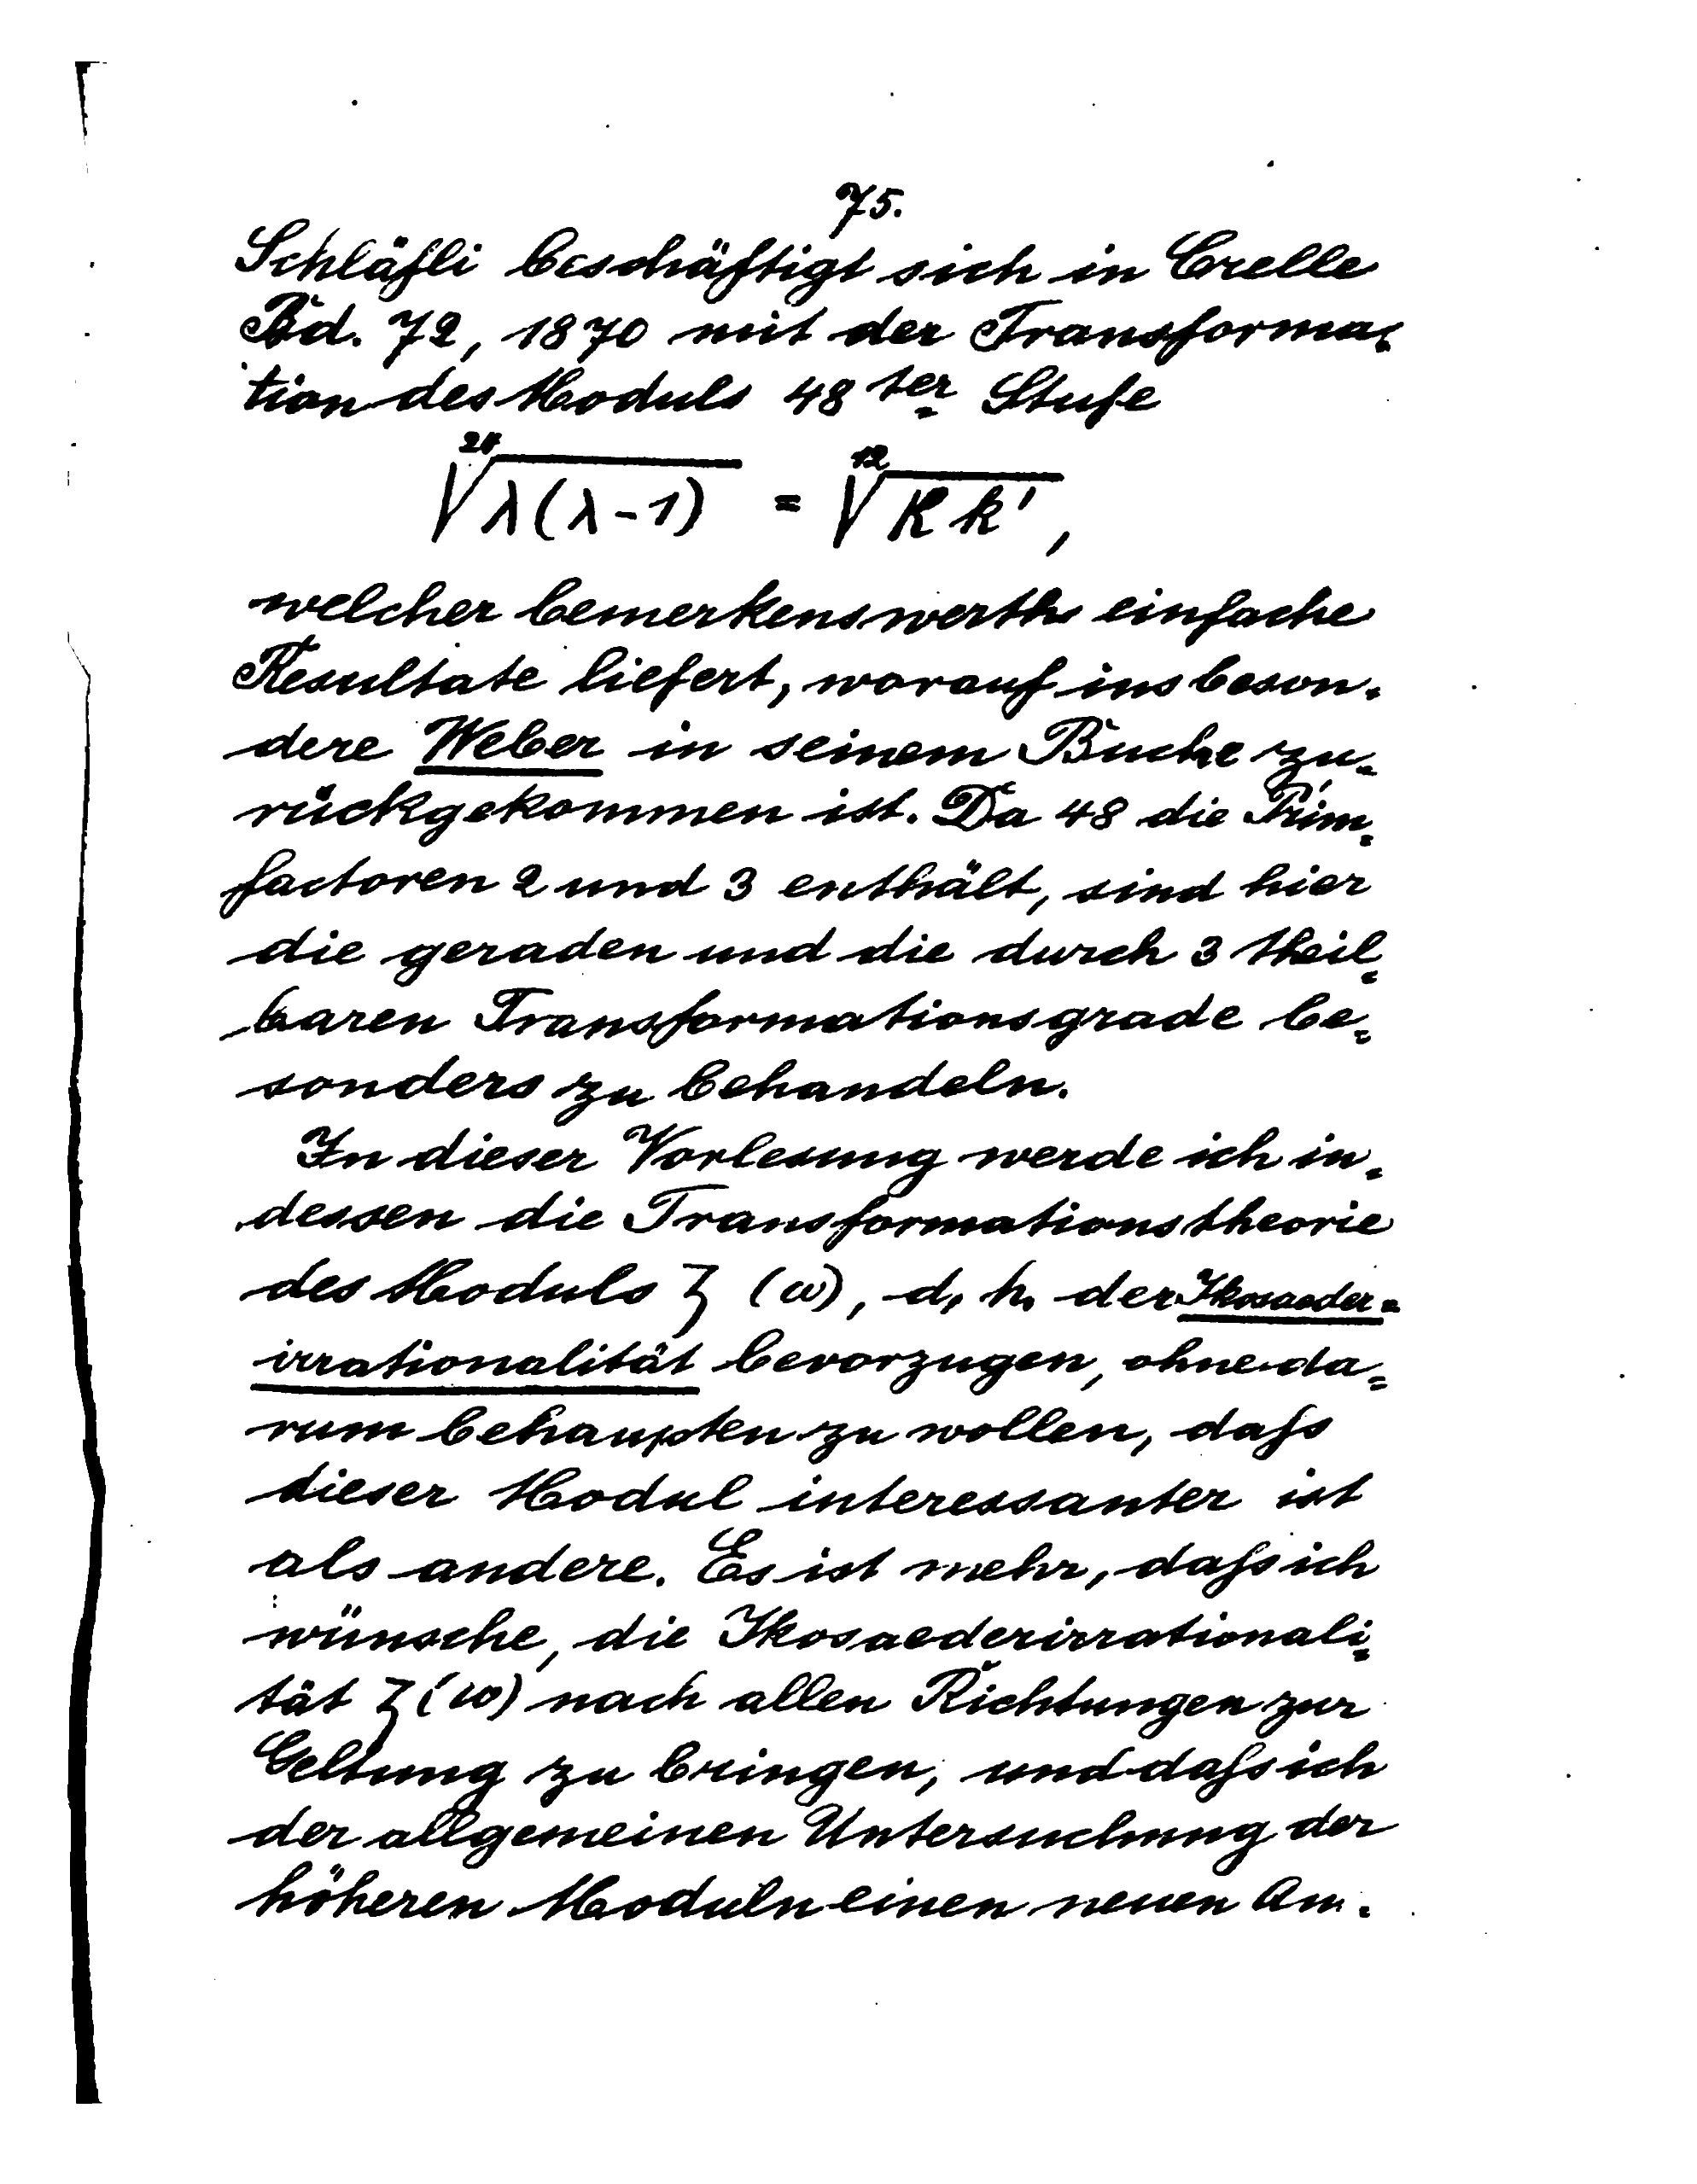 75.
Schläfli beschäftigt sich in Crelle
Bd. 72, 1870 mit der Transforma=
tion des Moduls 48 ter Stufe
$\sqrt[24]{\lambda(\lambda-1)} = \sqrt[12]{k k'}$,
welcher bemerkenswerth einfache
Resultate liefert, worauf insbeson=
dere Weber in seinem Buche zu=
rückgekommen ist. Da 48 die Prim=
factoren 2 und 3 enthält, sind hier
die geraden und die durch 3 theil=
baren Transformationsgrade be=
sonders zu behandeln.
In dieser Vorlesung werde ich in=
dessen die Transformationstheorie
des Moduls ζ (ω), d. h. der Ikosaeder=
irrationalität bevorzugen, ohne da=
rum behaupten zu wollen, daſs
dieser Modul interessanter ist
als andere. Es ist mehr, daſs ich
wünsche, die Ikosaederirrationali=
tät ζ (ω) nach allen Richtungen zur
Geltung zu bringen, und daſs ich
der allgemeinen Untersuchung der
höheren Moduln einen neuen An=